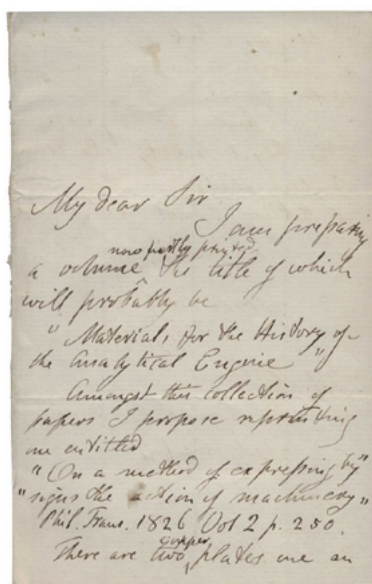 My dear Sir
I am preparing
now partly printed
a volume the title of which
will probably be
" Materials for the History of
the Analytical Engine "
Amongst this collection of
papers I propose reprinting
one entitled
" On a method of expressing by "
" signs the action of machinery "
Phil. Trans. 1826 Vol 2 p. 250.
copper
There are two plates one an